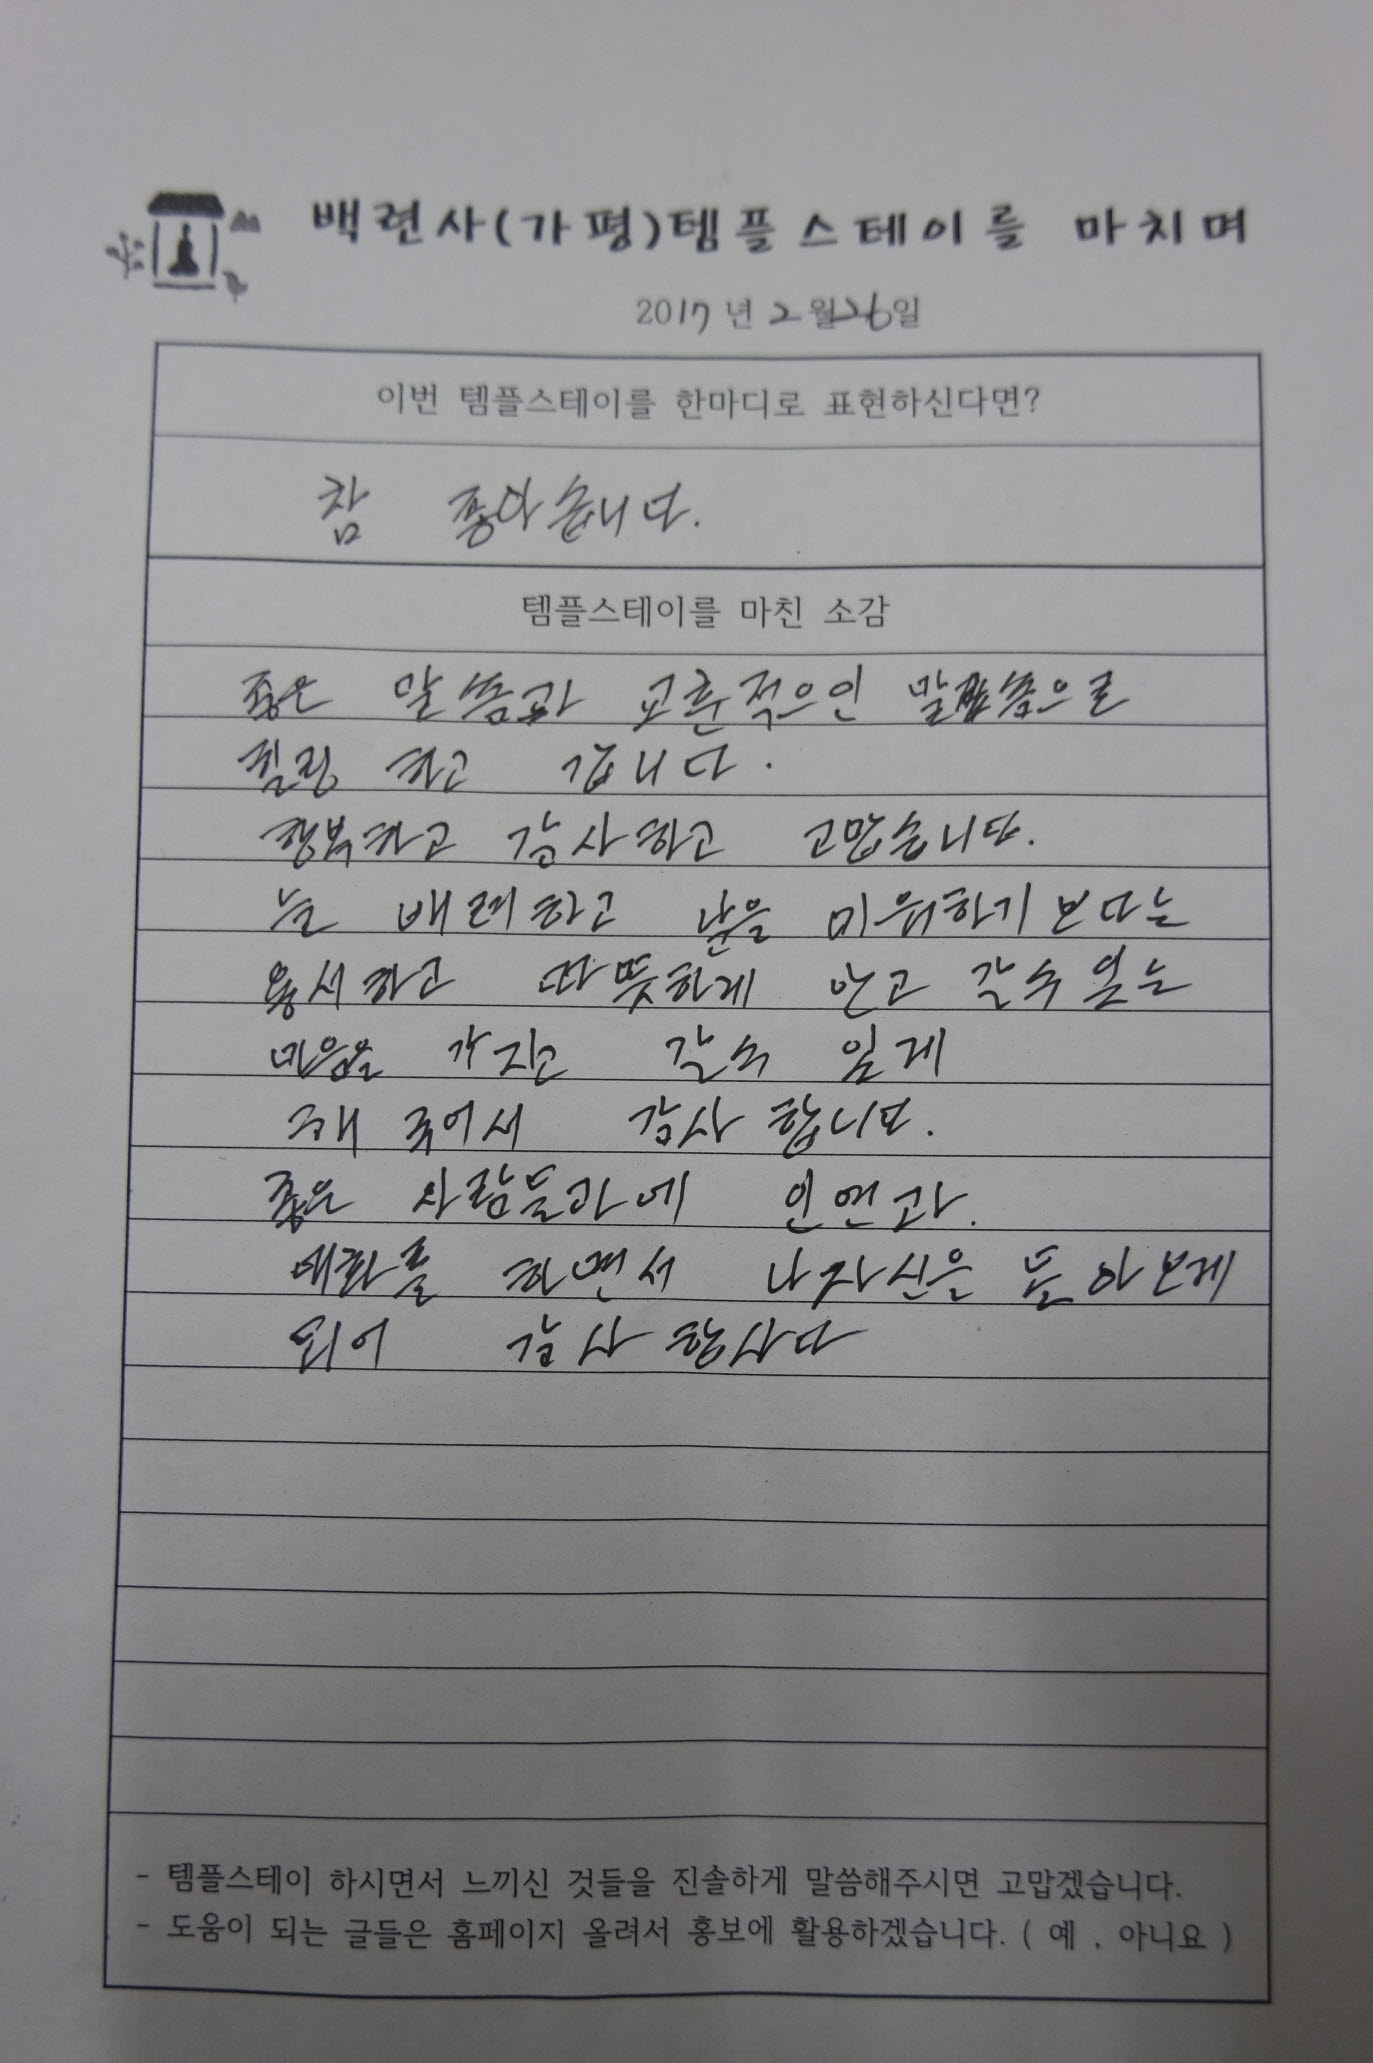 백련사(가평)템플스테이를 마치며
2017년 2월26일
이번 템플스테이를 한마디로 표현하신다면?
참 좋아습니다.
템플스테이를 마친 소감
좋은 말씀과 교훈적으인 말씀으로
힐링 하고 갑니다.
행복하고 감사하고 고맙습니다.
늘 배려하고 남을 미워하기보다는
용서하고 따뜻하게 안고 갈수 있는
마음을 가지고 갈수 있게
해 주어서 감사 합니다.
좋은 사람들과에 인연과.
대화를 하면서 나자신을 돌아보게
되어 감사 합니다
- 템플스테이 하시면서 느끼신 것들을 진솔하게 말씀해주시면 고맙겠습니다.
- 도움이 되는 글들은 홈페이지 올려서 홍보에 활용하겠습니다. ( 예 , 아니요 )